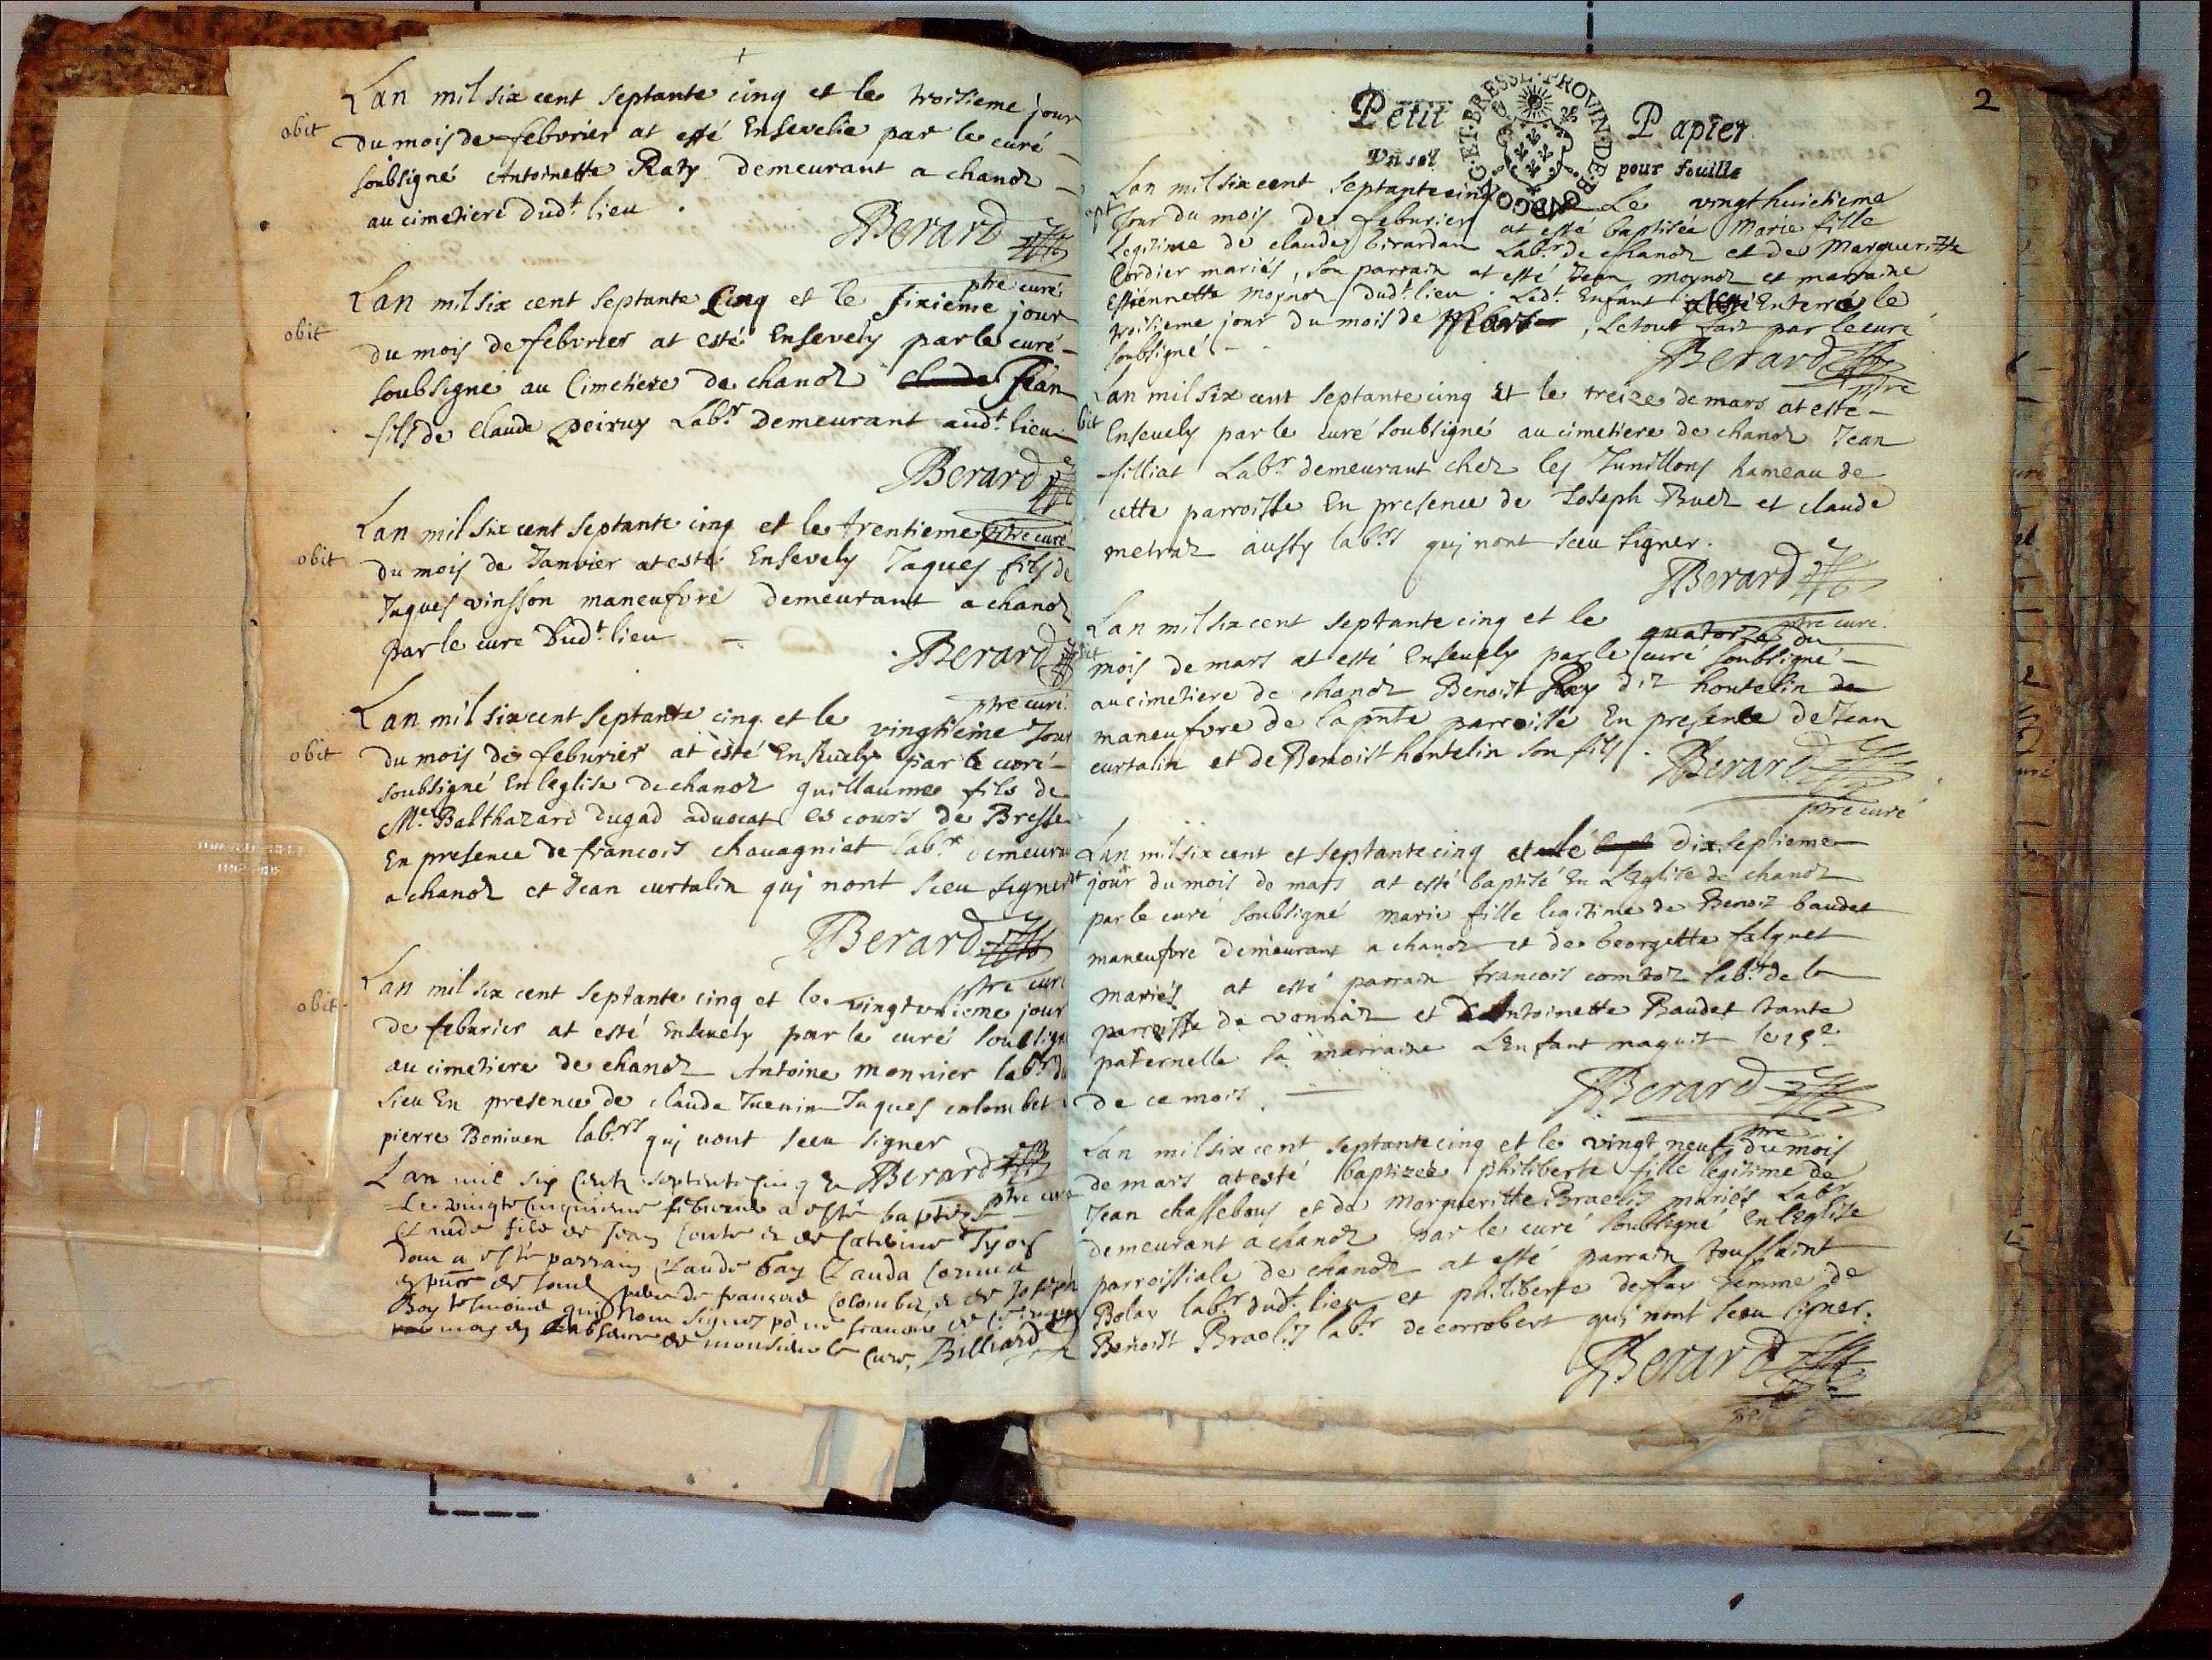 Lan mil six cent septante cinq et le troisieme jour
obit
du mois de febvrier at esté Ensevelie par le curé
soubsigné Antoinette Raty demeurant a chanoz
au cimetiere dudt lieu .
Berard
ptre curé
Lan mil six cent septante cinq et le sixieme jour
obit
du mois de febvrier at esté Ensevely par le curé
soubsigné au Cimetiere de chanoz Jean
fils de Claude peiruy Labr demeurant audt lieu
Berard
ptre curé
Lan mil six cent septante cinq et le trentieme
obit
du mois de Janvier at esté Ensevely Jaques fils de
Jaques vinsson maneufvre demeurant a chanoz
par le curé dudt lieu
Berard
ptre curé
Lan mil six cent septante cinq et le vingtieme Jour
obit
du mois de feburier at esté Ensevely par le curé
soubsigné En leglise de chanoz guillaume fils de
Me Balthazard dugad advocat es cours de Bresse
En presence de francois chavagniat labr demeurant
a chanoz et Jean curtalin quj nont sceu signer
Berard
ptre curé
Lan mil six cent septante cinq et le vingtunieme jour
obit
de feburier at esté Ensevely par le curé soubsigné
au cimetiere de chanoz Antoine monnier labr du
lieu En presence de claude Tuenin Jaques colombet
pierre Boniven labrs quj nont sceu signer
Berard
ptre curé
Lan mil six cents septente cinq et
Le vingt cinquieme febvrier a esté baptisé
Claude fils de Jean et de Catherine
dont a esté parrain Claude Gay Clauda
Billiard
2
Petit Papier
Vn sol pour feuille
BOVRGOG·ET·BRESSE·PROVIN·DE
Lan mil six cent septante cinq Le vingthuictieme
Jour du mois de feburier at esté baptisée Marie fille
Legitime de claude Girardan Labr de chanoz et de Margueritte
Cordier mariés, son parrain at esté Jean moynoz et marraine
Estiennette moynoz dudt lieu . Ledt Enfant Enterré le
troisieme jour du mois de Mars, le tout fait par le curé
soubsigné
Berard
ptre
Lan mil six cent septante cinq et le treize de mars at esté
Ensevely par le curé soubsigné au cimetiere de chanoz Jean
filliat Labr demeurant chez les Junillons hameau de
cette parroisse En presence de Joseph Buez et claude
metraz aussy labrs quj nont sceu signer.
Berard
ptre curé
Lan mil six cent septante cinq et le quatorze du
mois de mars at esté Ensevely par le curé soubsigné
au cimetiere de chanoz Benoist Ray dit hontelin
maneufvre de la pnte parroisse En presence de Jean
curtalin et de Benoist hontelin son fils .
Berard
ptre curé
Lan mil six cent et septante cinq et le dixseptieme
jour du mois de mars at esté baptisé En LEglise de chanoz
par le curé soubsigné marie fille legitime de Benoit baudet
maneufvre demeurant a chanoz et de Georgette falquet
mariés at esté parrain francois comtoz labr de la
parroisse de vonnaz et Antoinette Baudet tante
paternelle sa marraine LEnfant naquit le 15e
de ce mois .
Berard
ptre
Lan mil six cent septante cinq et le vingt neuf du mois
de mars at esté baptizée philiberte fille legitime de
Jean chassebouy et de Marguerittte Braelis mariés Labrs
demeurant a chanoz par le curé soubsigné En LEglise
parroissiale de chanoz at esté parrain toussaint
Bolay labr dudt lieu et philiberte defay femme de
Benoist Braelis labr de corrobert quj nont sceu signer.
Berard